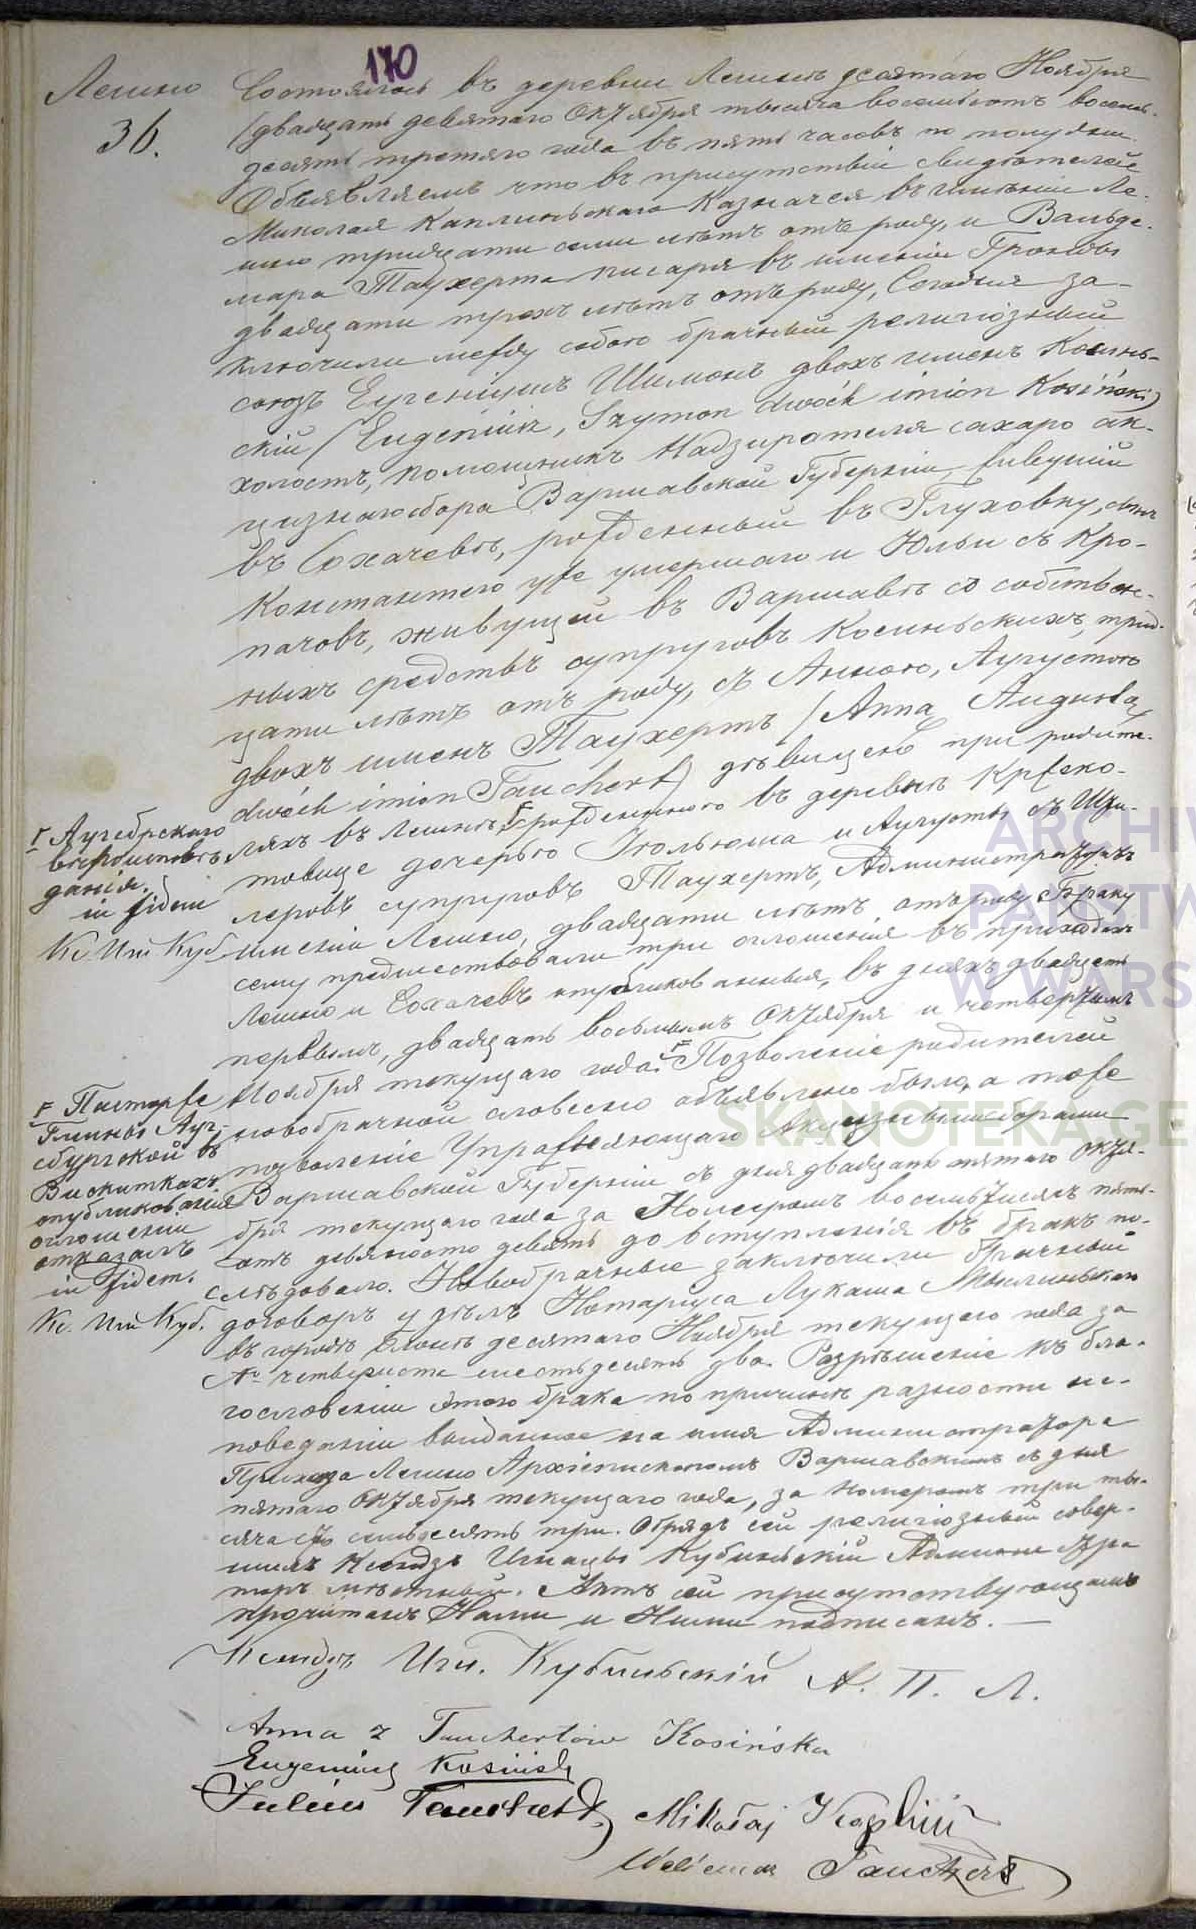 170
Лешно
36.
Состоялось въ деревни Лешнѣ десятаго Ноября
(двадцать девятаго Октября тысяча восемьсотъ восемь-
десятъ третяго года въ пять часовъ по полудни.
Объявляемъ что въ присутствіи свидѣтелей
Миколая Каплиньскаго Казначея въ имѣніи Ле-
шно тридцати семи лѣтъ отъ роду, и Вальде-
мара Таухерта писаря въ имѣніи
двадцати трехъ лѣтъ отъ роду, Сегодня за-
ключили между собою брачный религіозный
союзъ Еугеніушъ Шимонъ двохъ именъ Косинь-
скій (Eugeniusz, Szymon dwóch imion Kosiński)
холостъ, помощникъ Надзирателя сахаро ак-
цизнаго сбора Варшавской Губерніи, живущій
въ Сохачевѣ, рожденный въ Глуховку, сынъ
Константего уже умершаго и Юльи съ Кро-
пачовъ, живущей въ Варшавѣ со собствен-
ныхъ средствъ супруговъ Косиньскихъ, трид-
цати лѣтъ отъ роду, съ Анною, Аугустою
двохъ именъ Таухертъ (Anna Augusta
dwóch imion Tauchert) дѣвицею при родите-
ляхъ въ Лешнѣ рожденною въ деревнѣ Кржеко-
товице дочерью Юльюша и Аугусты съ Ши-
леровъ супруговъ Таухертъ, Администраторахъ
имѣнія Лешно, двадцати лѣтъ отъ роду Браку
сему предшествовали три оглошенія въ приходахъ
Лешно и Сохачевъ опубликованныя, въ дняхъ двадцать
первымъ, двадцать восьмымъ Октября и четвертымъ
Ноября текущаго года. Позволеніе родителей
новобрачной словесно объявлено было, а тоже
позволеніе Управляющаго Акцизными сборами
Варшавской Губерніи съ дня двадцать пятаго Октя-
бря текущаго года за Номеромъ восемь тысячъ пять-
сотъ девяносто девять до вступленія въ бракъ по-
слѣдовало. Новобрачные заключили брачный
договоръ у дѣлъ Нотаріуса Лукаша
въ городѣ Блонѣ десятаго Ноября текущаго года за
№ четыреста шестьдесятъ два. Разрѣшеніе къ бла-
гословеніи этого брака по причинѣ разности ис-
поведаніи выданное на имя Администратора
Прихода Лешно Архіепископомъ Варшавскимъ съ дня
пятаго Октября текущаго года, за номеромъ три ты-
сяча сто семьдесятъ три. Обрядъ сей религіозный совер-
шилъ Ксендзъ Игнацы Кубиньскій Администра
торъ мѣстный. Актъ сей присутствующимъ
прочитанъ Нами и Ними подписанъ. —
Ксендзъ Игн. Кубиньскій А. П. Л.
Anna z Tauchertów Kosińska
Eugeniusz Kosiński
Julius Tauchert Mikołaj Kapliń
Waldemar Tauchert
Аугсбрскаго
вѣроисповѣ
данія.
in fidem
Кс. Игн Куб.
Пасторже
Гмины Ауг-
сбургской въ
Вискиткахъ
опубликованія
оглошеніи
отказалъ
in fidem.
Кс. Игн Куб.
ARCHIW
PAŃSTW
W WARS
SKANOTEKA GE